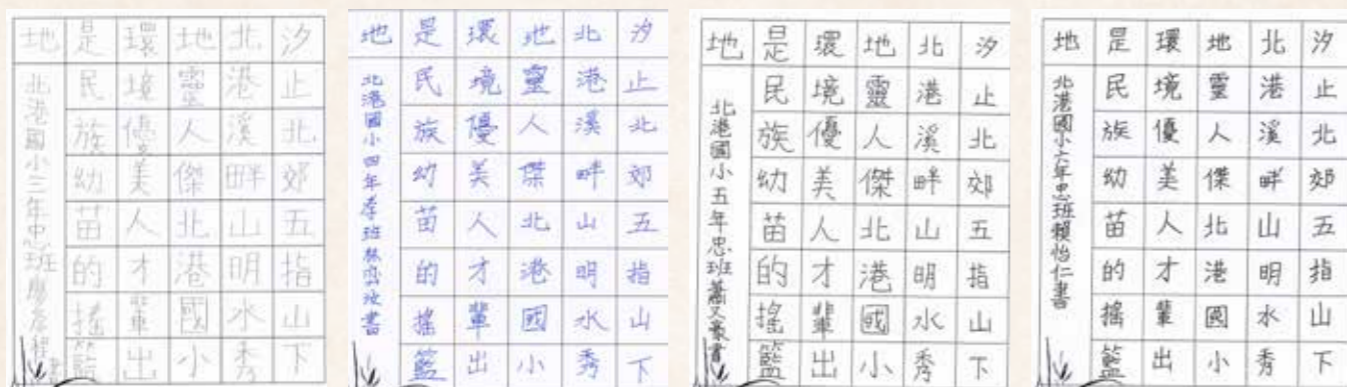 汐止北郊五指山下
北港溪畔山明水秀
地靈人傑北港國小
環境優美人才輩出
是民族幼苗的搖籃
地
北港國小三年忠班廖書
汐止北郊五指山下
北港溪畔山明水秀
地靈人傑北港國小
環境優美人才輩出
是民族幼苗的搖籃
地
北港國小四年孝班林書
汐止北郊五指山下
北港溪畔山明水秀
地靈人傑北港國小
環境優美人才輩出
是民族幼苗的搖籃
地
北港國小五年忠班蕭又豪書
汐止北郊五指山下
北港溪畔山明水秀
地靈人傑北港國小
環境優美人才輩出
是民族幼苗的搖籃
地
北港國小六年忠班賴怡仁書